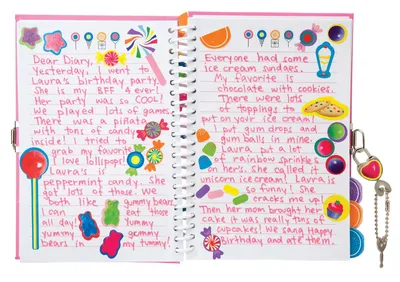 Dear Diary,
Yesterday, I went to
Laura's birthday party.
She is my BFF 4 ever!
Her party was so COOL!
We played lots of games.
There was a piñata
with tons of candy
inside! I tried to
grab my favorite
I love lollipops!
Laura's is
peppermint candy. She
got lots of those. We
both like gummy bears.
I can eat those
all day! Yummy
Yummy gummy
bears in my tummy!
Everyone had some
ice cream sundaes.
My favorite is
chocolate with cookies.
There were lots
of toppings to
put on your ice cream!
I put gum drops and
gum balls in mine!
Laura put a lot
of rainbow sprinkles
on her's. She called it
unicorn ice cream! Laura is
so funny! She
cracks me up!
Then her mom brought her
cake it was really tons of
cupcakes! We sang Happy
Birthday and ate them.